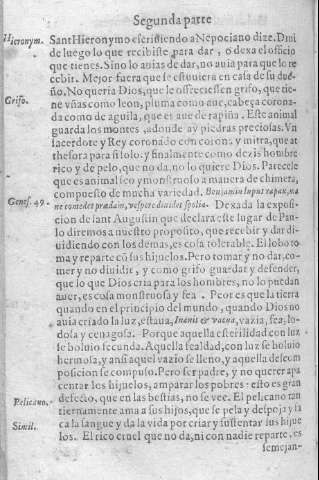 Segunda parte
Hieronym. Sant Hieronymo escriuiendo a Nepociano dize. Diui
de luego lo que recibiste para dar, o dexa el officio
que tienes. Sino lo auias de dar, no auia para que lo re
cebir. Mejor fuera que se estuuiera en casa de su due
ño. No queria Dios, que le offreciessen grifo, que tie-
Grifo. ne vñas como leon, pluma como aue, cabeça corona-
da como de aguila, que es aue de rapiña. Este animal
guarda los montes, adonde ay piedras preciosas. Vn
sacerdote y Rey coronado con corona y mitra, que at
thesora para si solo: y finalmente como dezis hombre
rico y de pelo, que no da, no lo quiere Dios. Parecele
que es animal feo y monstruoso a manera de chimera,
compuesto de mucha variedad. Beniamin lupus rapax, ma
Genes. 49. ne comedet prædam, vespere diuidet spolia. Dexada la exposi-
cion de sant Augustin que declara este lugar de Pau-
lo diremos a nuestro proposito, que recebir y dar di-
uidiendo con los demas, es cosa tolerable. El lobo to
ma y reparte cō sus hijuelos. Pero tomar y no dar, co-
mer y no diuidir, y como grifo guardar y defender,
que lo que Dios cria para los hombres, no lo puedan
auer, es cosa monstruosa y fea. Peor es que la tierra
quando en el principio del mundo, quando Dios no
auia criado la luz, estaua, Inanis & vacua, vazia, fea, lo-
dosa y cenagosa. Porque aquella esterilidad con luz
se boluio fecunda. Aquella fealdad, con luz se boluio
hermosa, y ansi aquel vazio se lleno, y aquella descom
posicion se compuso. Pero ser padre, y no querer apa
centar los hijuelos, amparar los pobres: esto es gran
defecto, que en las bestias, no se vee. El pelicano tan
Pelicano. tiernamente ama a sus hijos, que se pela y despoja y la
Simil. ca la sangre y da la vida por criar y sustentar sus hijue
los. El rico cruel que no da, ni con nadie reparte, es
semejan-